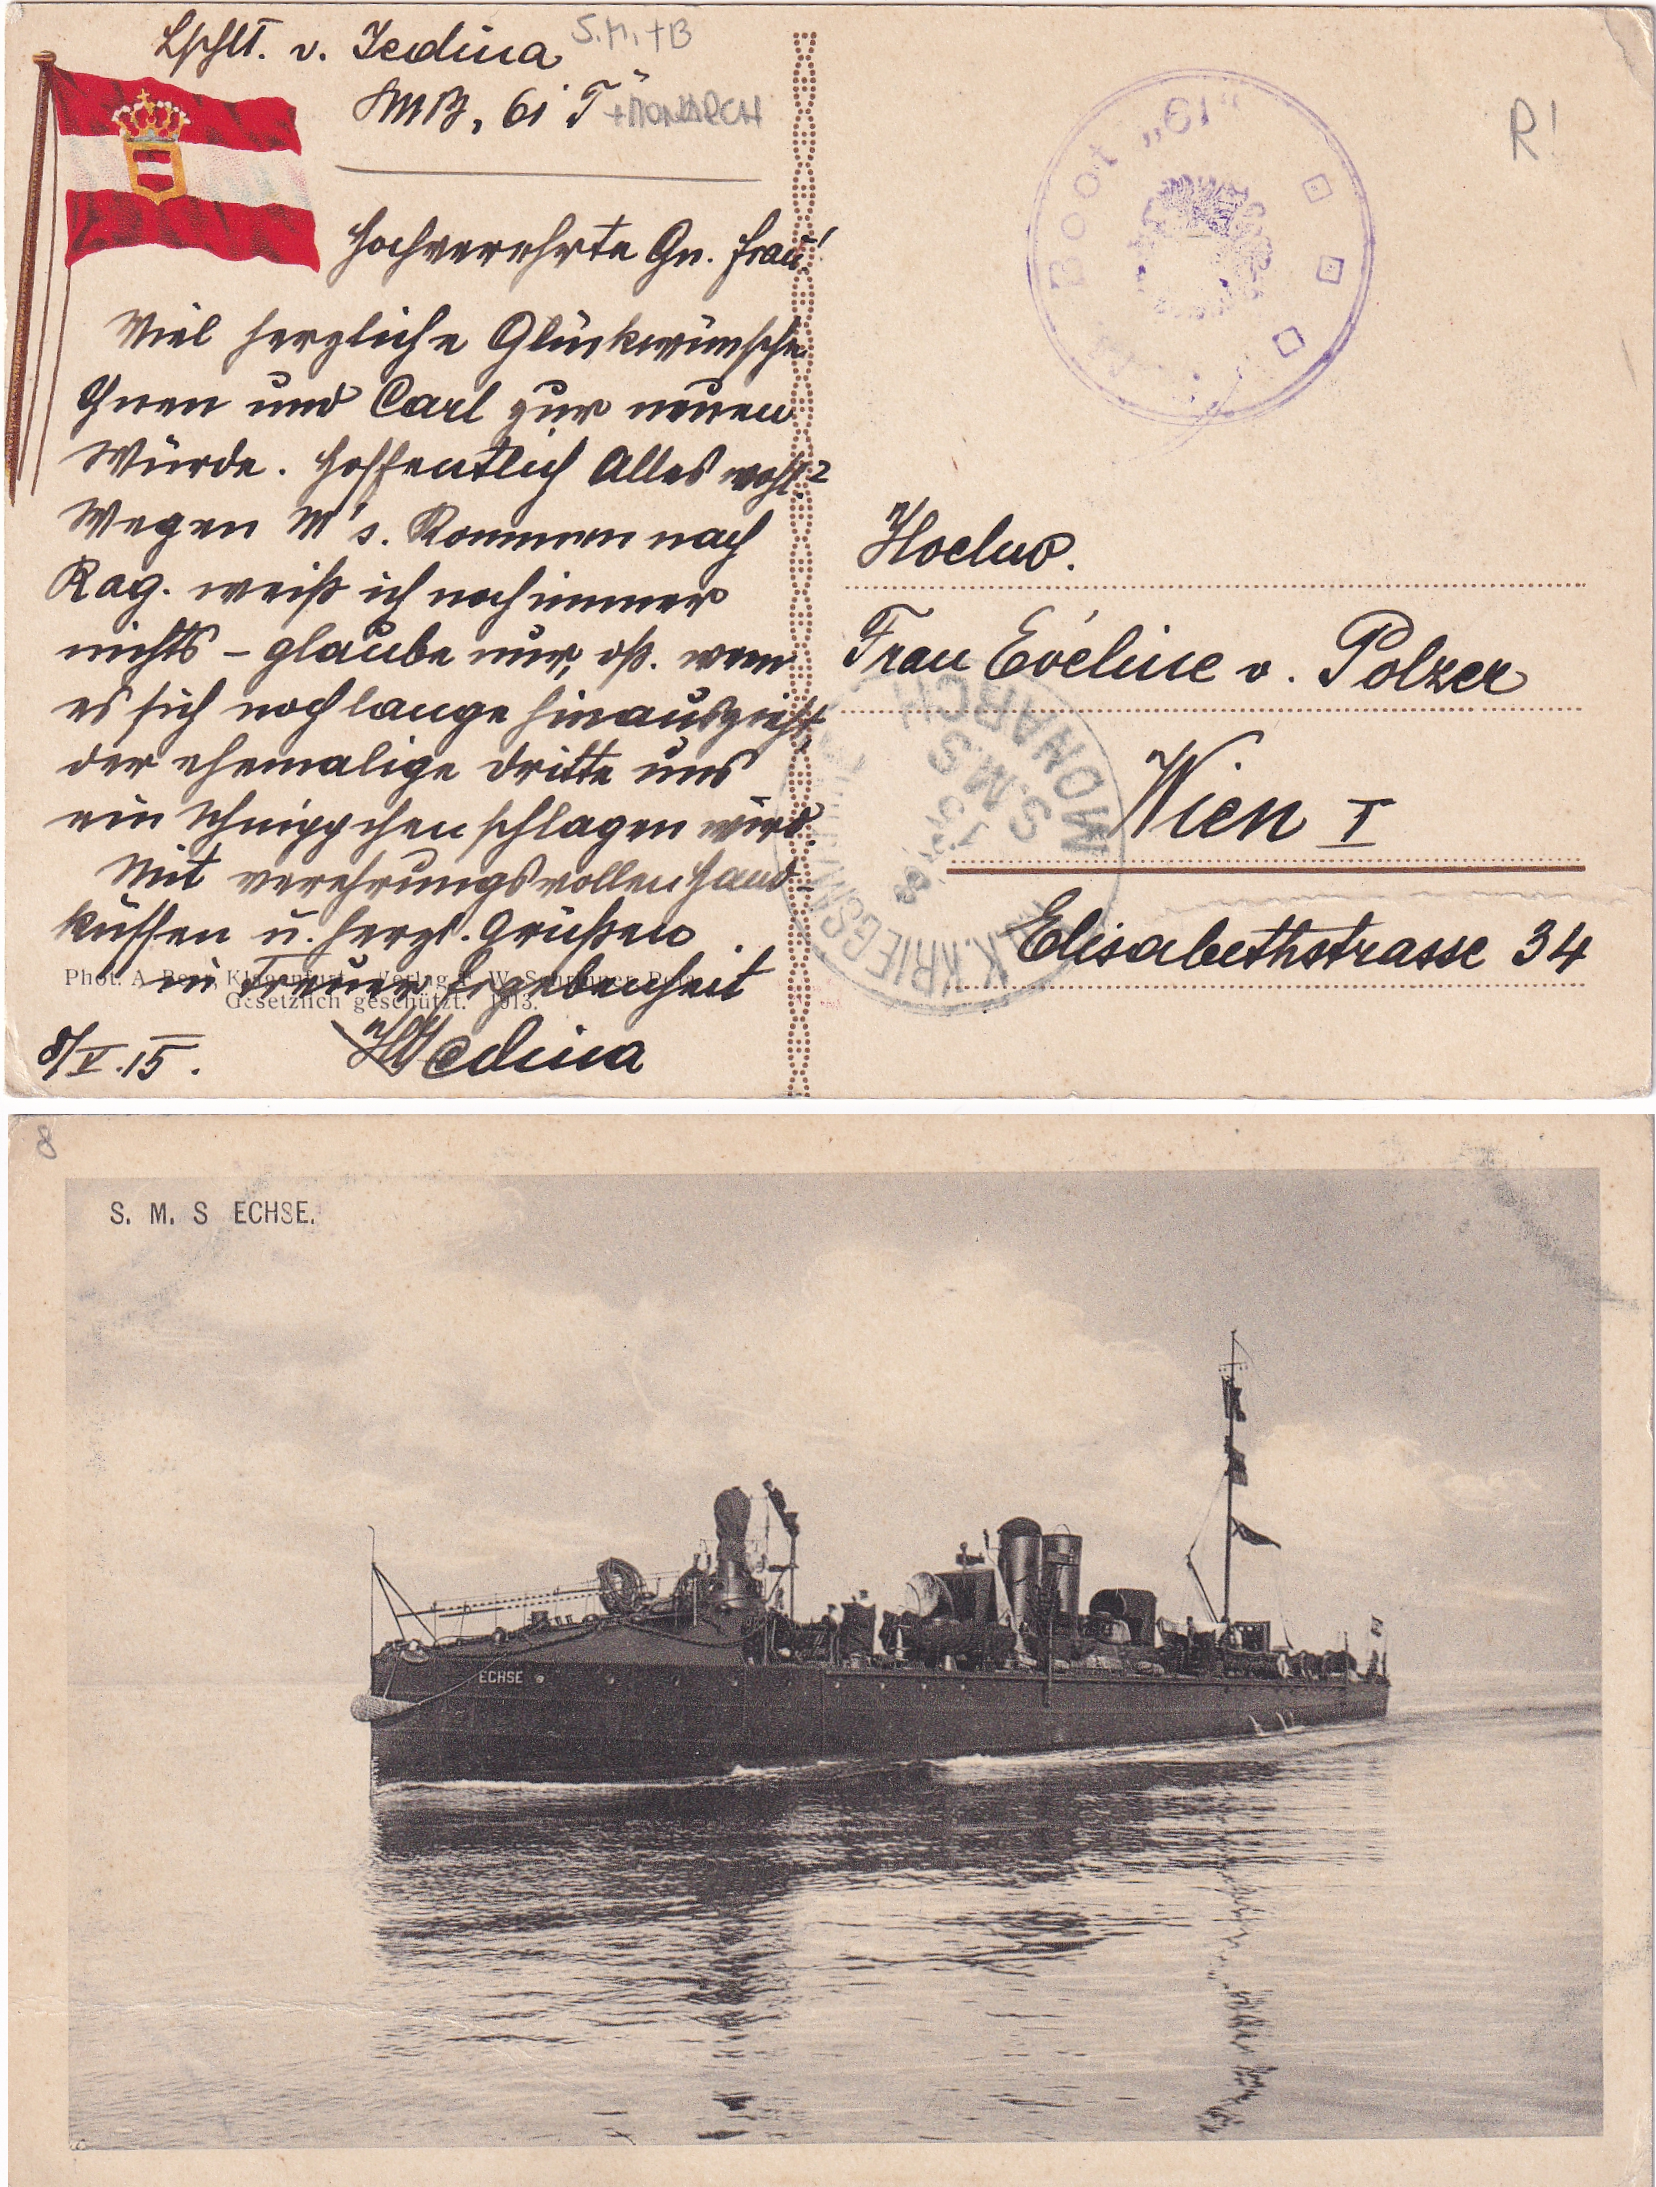 Lschlt. v. Jedina
S.M.+B
SMB, 61 T
+MONARCH
Hochverehrte Gn. Frau!
Viel herzliche Glückwünsche
Ihnen und Carl zur neuen
Würde. Hoffentlich Alles wohl?
Wegen M's. Kommen nach
Rag. weiß ich noch immer
nichts – glaube nur, daß. wenn
es sich noch lange hinauszieht,
der ehemalige Dritte uns
ein Schnippchen schlagen wird.
Mit verehrungsvollen Hand-
küssen u. herzl. Grüßen
in treuer Ergebenheit
Jedina
8/V.15.
Phot. A. Beer, Klagenfurt. Verlag F. W. Schrinner, Pola.
Gesetzlich geschützt. 1913.
Boot „61"
R!
Hochw.
Frau Evéline v. Polzer
Wien I
Elisabethstrasse 34
K.u.K. KRIEGSMARINE
S.M.S.
MONARCH
8
S. M. S ECHSE.
ECHSE